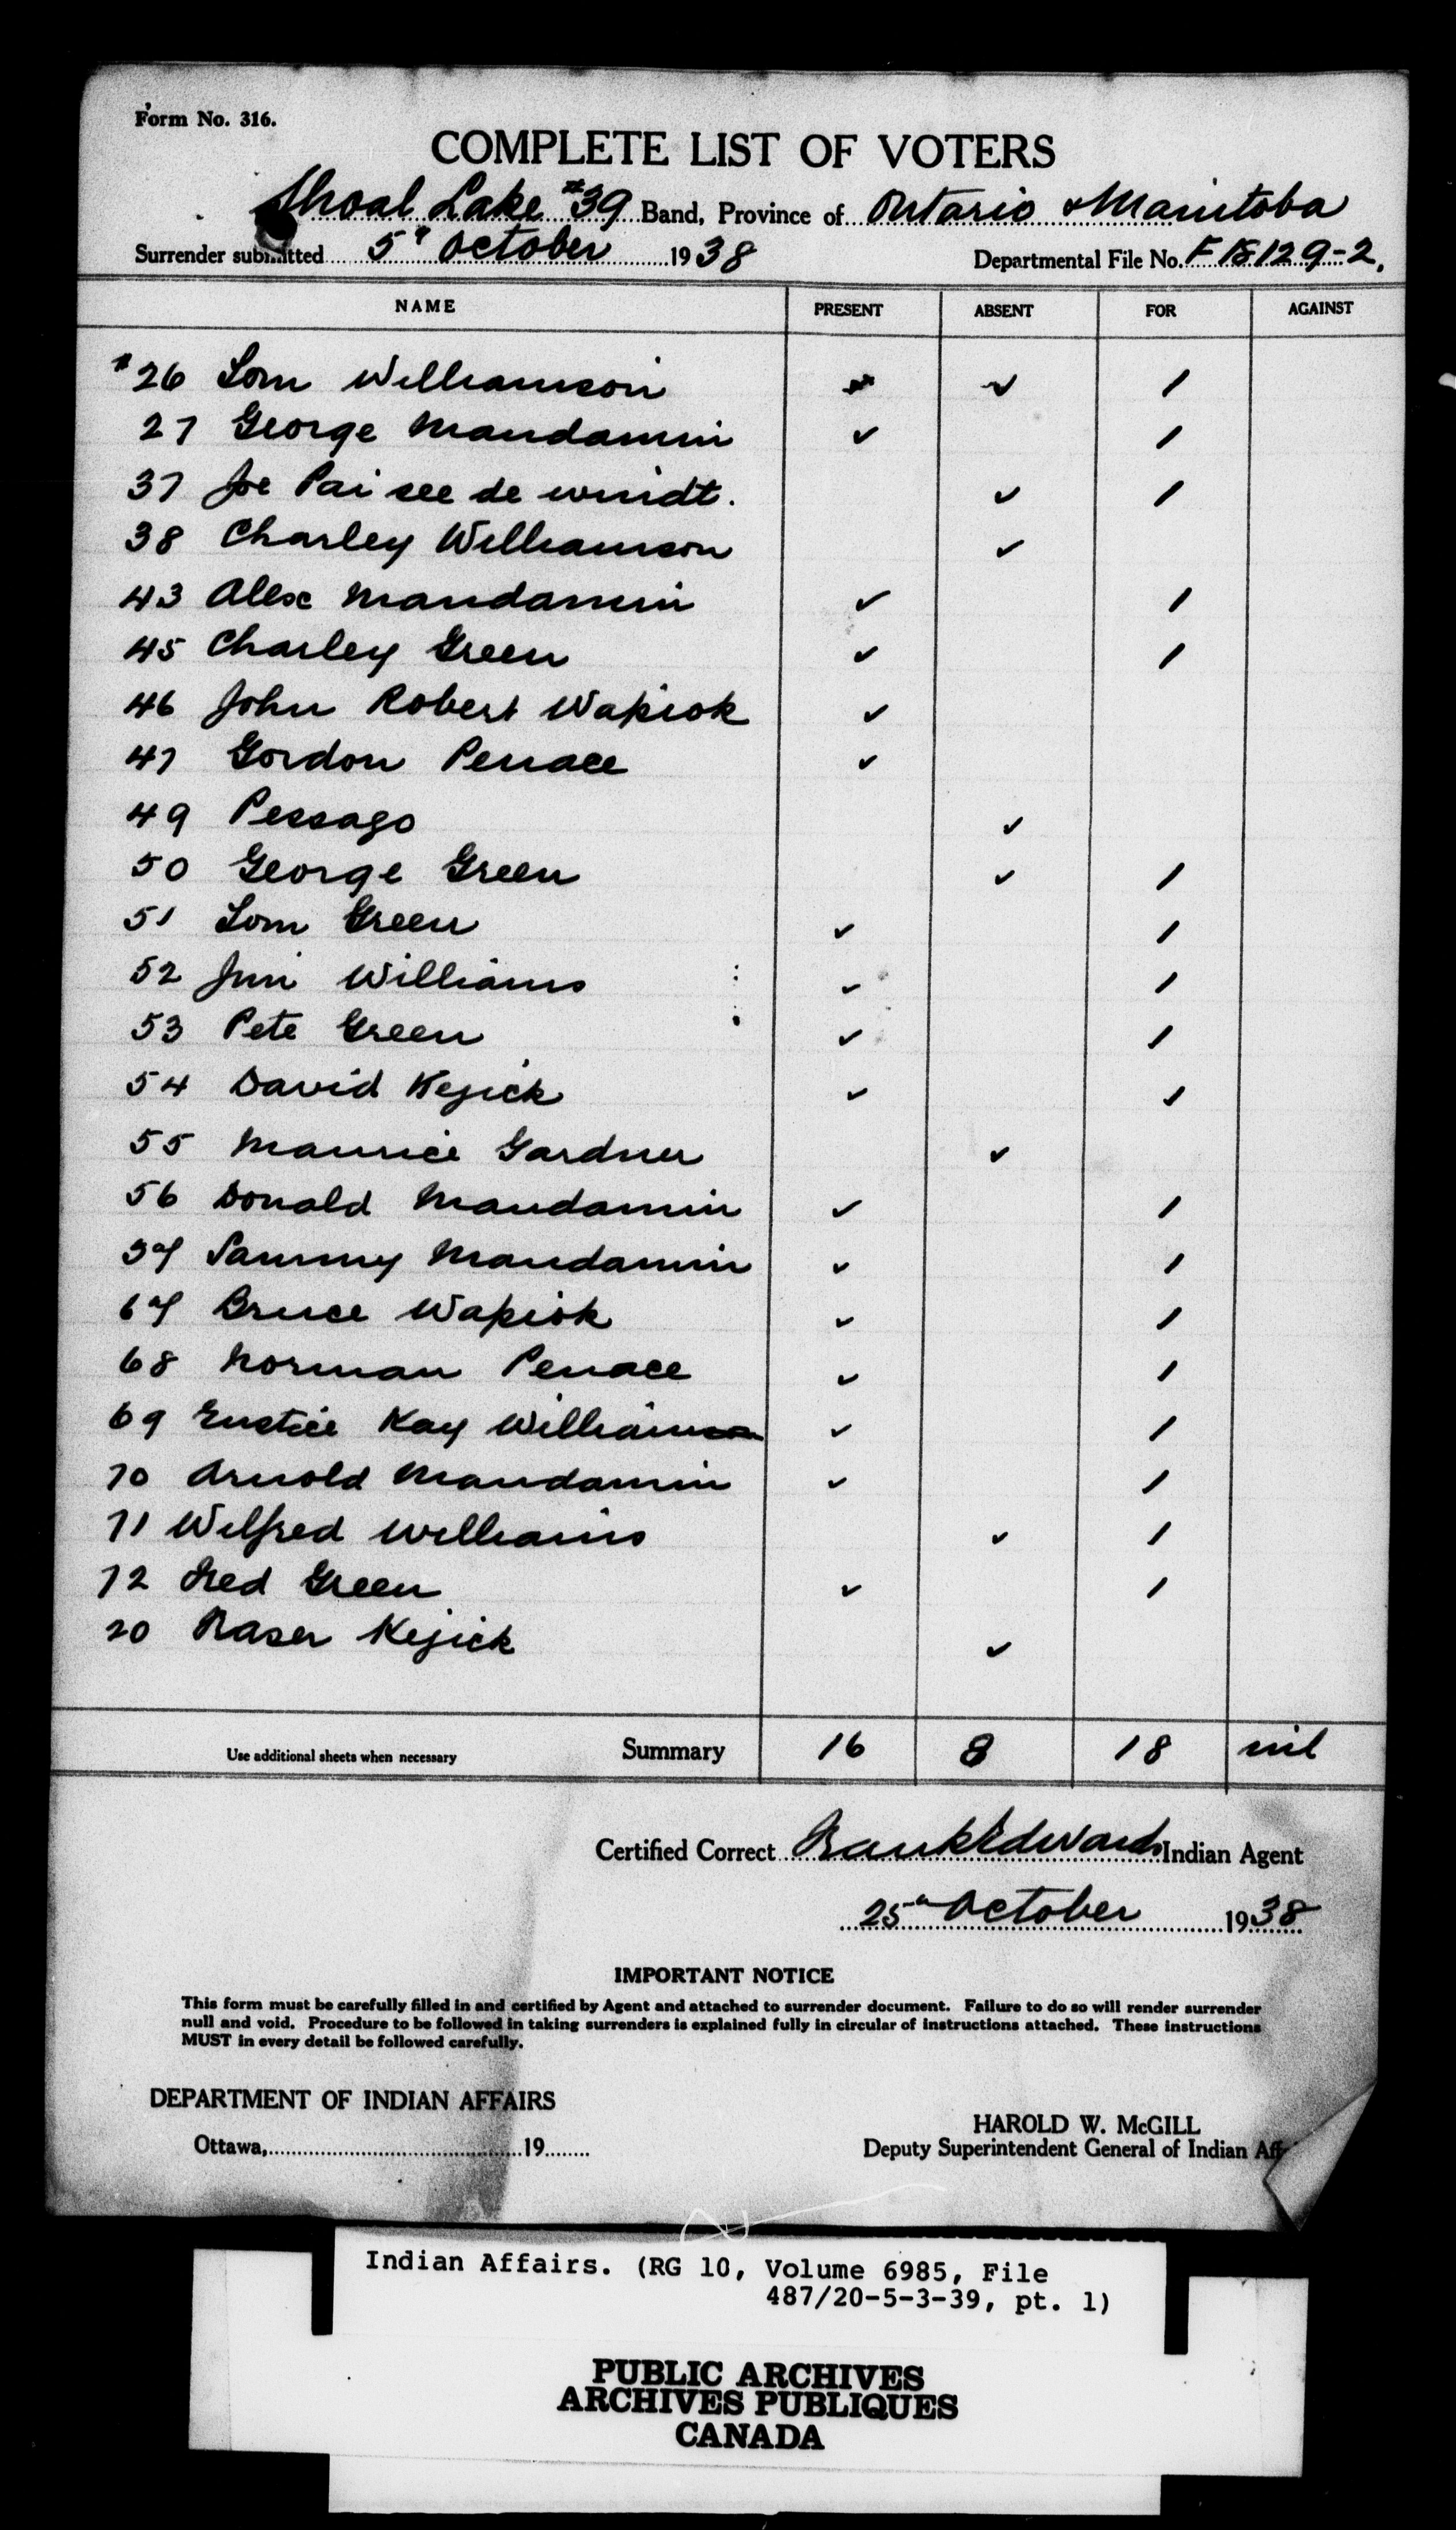 Form No. 316.
COMPLETE LIST OF VOTERS
Shoal Lake #39 Band, Province of Ontario & Manitoba
Surrender submitted 5th October 1938 Departmental File No. F 18129-2.
NAME PRESENT ABSENT FOR AGAINST
#26 Tom Williamson ✓ /
27 George Mandamin ✓ /
37 Joe Pai see de windt. ✓ /
38 Charley Williamson ✓
43 Alex Mandamin ✓ /
45 Charley Green ✓ /
46 John Robert Wapiok ✓
47 Gordon Penace ✓
49 Pessago ✓
50 George Green ✓ /
51 Tom Green ✓ /
52 Jim Williams ✓ /
53 Pete Green ✓ /
54 David Kejick ✓ /
55 Maurice Gardner ✓
56 Donald Mandamin ✓ /
57 Sammy Mandamin ✓ /
67 Bruce Wapiok ✓ /
68 Norman Penace ✓ /
69 Eustice Kay Williamson ✓ /
70 Arnold Mandamin ✓ /
71 Wilfred Williams ✓ /
72 Fred Green ✓ /
20 Kejick ✓
Use additional sheets when necessary Summary 16 8 18 nil
Certified Correct Frank Edwards Indian Agent
25th October 1938
IMPORTANT NOTICE
This form must be carefully filled in and certified by Agent and attached to surrender document. Failure to do so will render surrender
null and void. Procedure to be followed in taking surrenders is explained fully in circular of instructions attached. These instructions
MUST in every detail be followed carefully.
DEPARTMENT OF INDIAN AFFAIRS
HAROLD W. McGILL
Ottawa, 19 Deputy Superintendent General of Indian Aff
Indian Affairs. (RG 10, Volume 6985, File
487/20-5-3-39, pt. 1)
PUBLIC ARCHIVES
ARCHIVES PUBLIQUES
CANADA